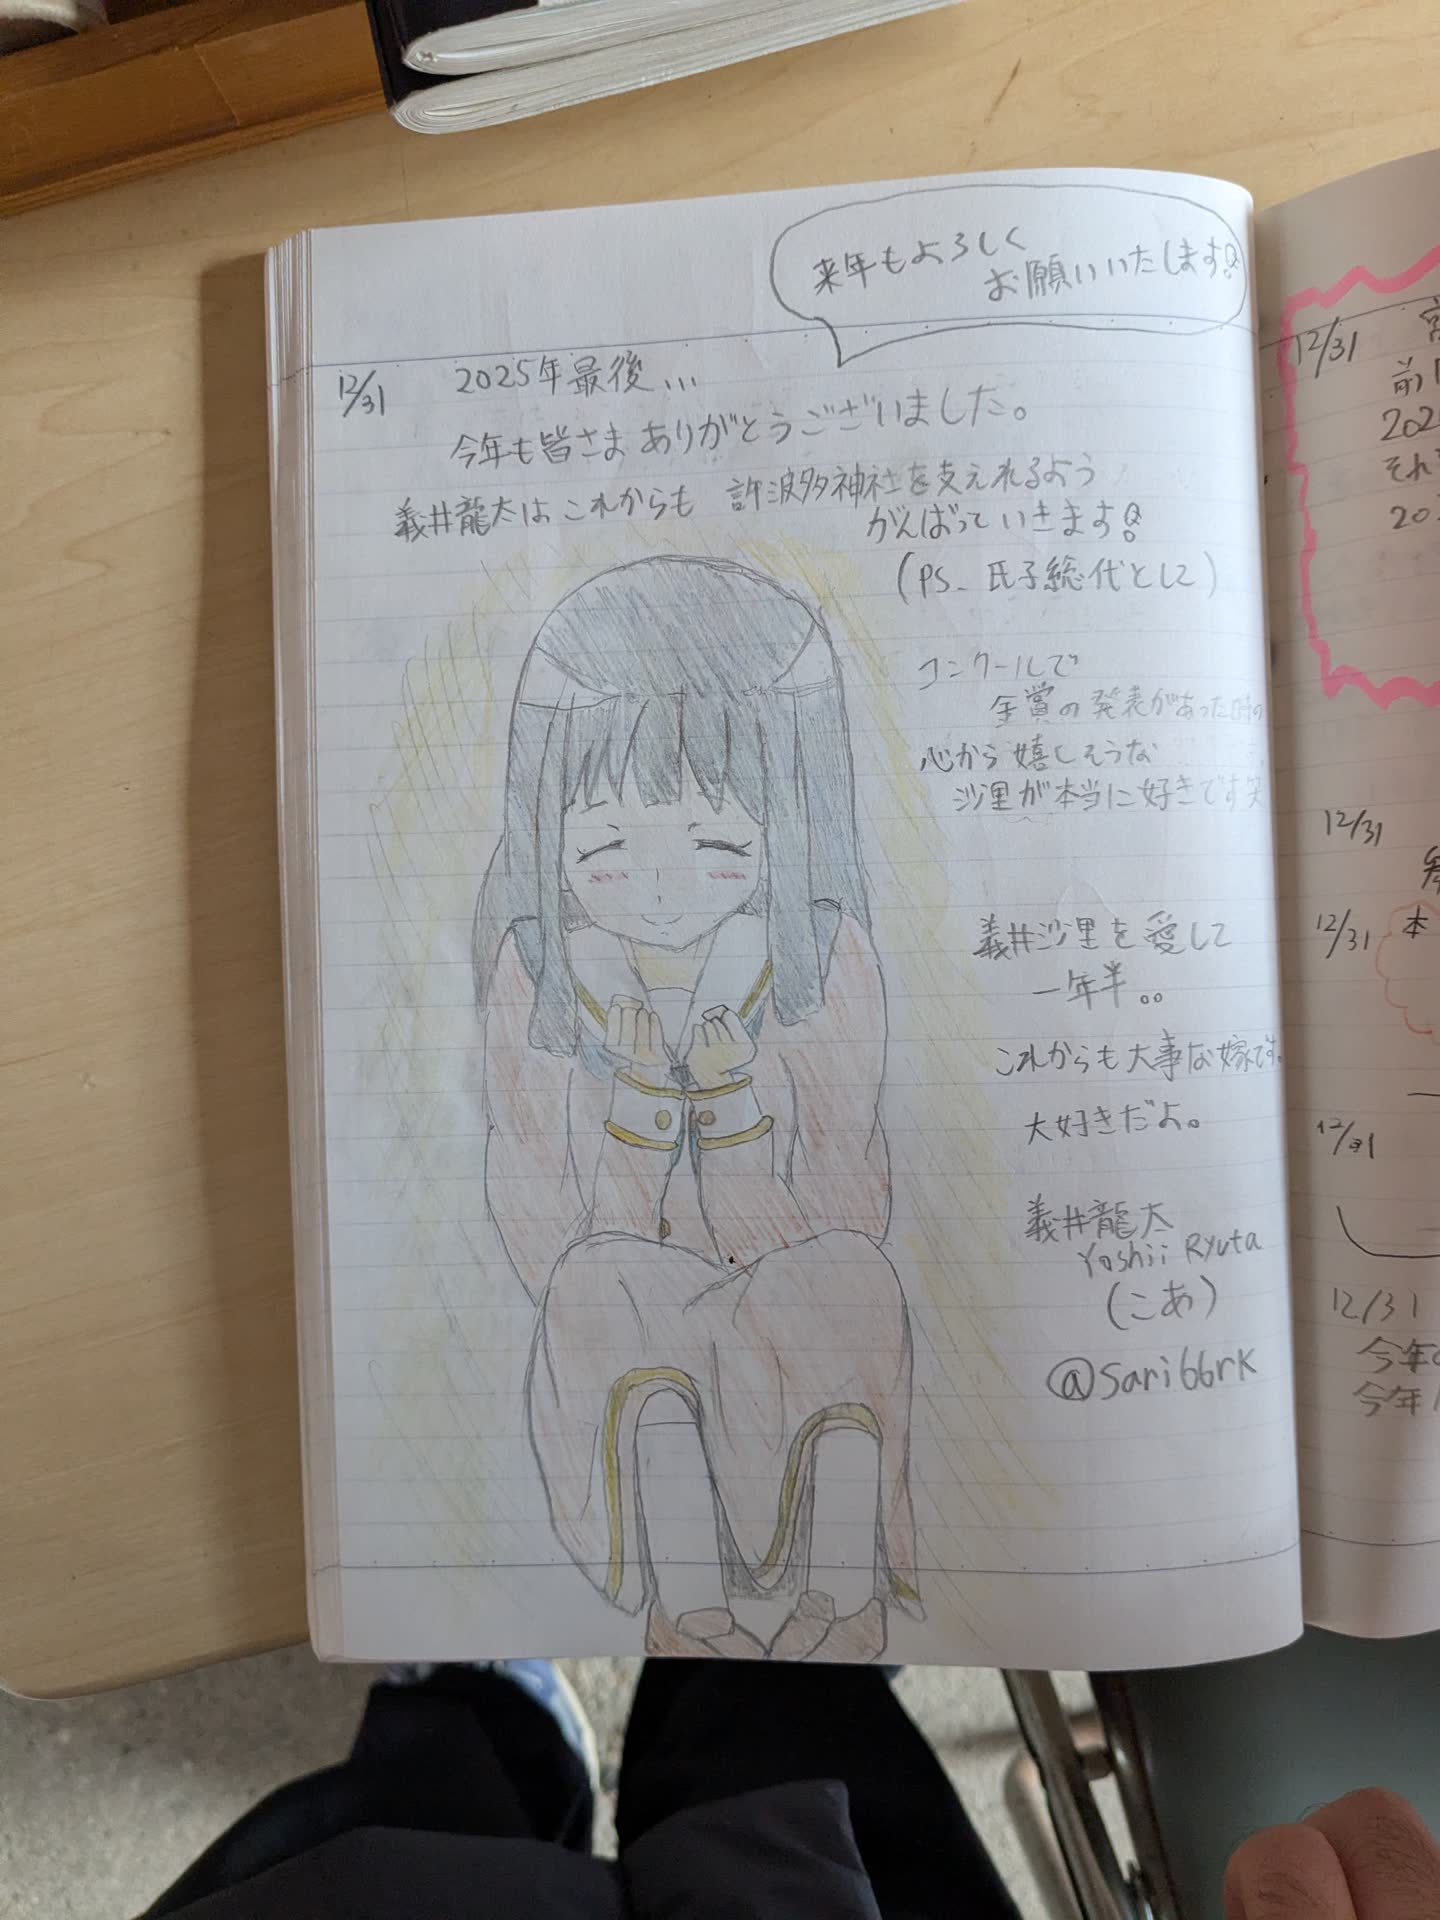 来年もよろしく
お願いいたします!
12/31
2025年最後...
今年も皆さまありがとうございました。
義井龍太はこれからも 許波多神社を支えれるよう
がんばっていきます!
(PS. 氏子総代として)
コンクールで
金賞の発表があった時の
心から嬉しそうな
沙里が本当に好きです笑
義井沙里を愛して
一年半。。
これからも大事な嫁です。
大好きだよ。
義井龍太
Yoshii Ryuta
(こあ)
@sari66rk
12/31
前
202
それ
20
12/31
12/31
本
12/31
12/31
今年
今年